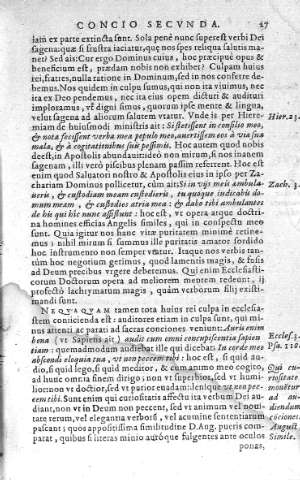 CONCIO SECVNDA. 27
iam ex parte extincta sunt. Sola penè nunc superest verbi Dei
sagena: quæ si frustra iaciatur, quæ nos spes reliqua salutis ma-
net? Sed ais: Cur ergo Dominus cuius, hoc præcipuè opus &
beneficium est, prædam nobis non exhibet? Culpam huius
rei, fratres, nulla ratione in Dominum, sed in nos conferre de-
bemus. Nos quidem in culpa sumus, qui non ita viuimus, nec
ita ex Deo pendemus, nec ita eius opem dicturi & audituri
imploramus, vt digni simus, quorum ipse mente & lingua,
velut sagena ad aliorum salutem vtatur. Vnde is per Hiere-
miam de huiusmodi ministris ait: Si stetissent in consilio meo,
& nota fecissent verba mea populo meo, auertissem eos à via sua
mala, & à cogitationibus suis pessimis. Hoc autem quod nobis
deest, in Apostolis abundauit: ideò non mirum, si nos inanem
sagenam, illi verò piscibus plenam passim referrent. Hoc est
enim quod Saluatori nostro & Apostolis eius in ipso per Za-
chariam Dominus pollicetur, cùm ait: Si in vijs meis ambula-
ueris, & custodiam meam custodieris, tu quoque iudicabis do-
mum meam, & custodies atria mea: & dabo tibi ambulantes
de his qui hîc nunc assistunt: hoc est, vt opera atque doctri-
na homines efficias Angelis similes, qui in conspectu meo
sunt. Quia igitur nos hanc vitæ puritatem minimè retine-
mus: nihil mirum si summus ille puritatis amator sordido
hoc instrumento non semper vtatur. Itaque nos verbis tan-
tùm hoc negotium gerimus, quod lamentis magis, & fusis
ad Deum precibus vrgere deberemus. Qui enim Ecclesiasti-
corum Doctorum opera ad meliorem mentem redeunt, ij
profectò lachrymarum magis, quàm verborum filij existi-
mandi sunt.
NEQVAQVAM tamen tota huius rei culpa in ecclesia-
stem conijcienda est: auditores etiam in culpa sunt, qui mi-
nus attenti ac parati ad sacras conciones veniunt: Auris enim
bona (vt Sapiens ait) audit cum omni concupiscentia sapien
tiam: quemadmodum audiebat ille qui dicebat: In corde meo
abscondi eloquia tua, vt non peccem tibi: hoc est, si quid au-
dio, si quid lego, si quid meditor, & cum animo meo cogito,
id huc omnia finem dirigo: non vt superbior, sed vt humi-
lior: non vt doctior, sed vt purior euadam: denique vt non pec-
cem tibi. Sunt enim qui curiositatis affectu ita verbum Dei au-
diant, non vt in Deum non peccent, sed vt animum vel noui-
tate rerum, vel elegantia verborum, vel acumine sententiarum
pascant: quos appositissima similitudine D. Aug. pueris com-
parat, quibus si literas minio auróque fulgentes ante oculos
ponas,
Hier. 23.
Zach. 3.
Eccles. 3.
Psa. 118.
Qui cu-
riositate
mouetur
ad au-
diendum
cociones.
August.
Simile.